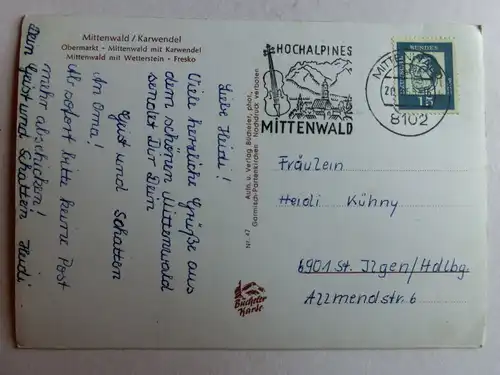 Mittenwald / Karwendel
Obermarkt - Mittenwald mit Karwendel
Mittenwald mit Wetterstein - Fresko
Liebe Heidi!
Viele herzliche Grüße aus
dem schönen Mittenwald
sendet Dir Dein
Geist und Schatten
An Oma!
Ab sofort bitte keine Post
mehr abschicken!
Dein Geist und Schatten Heidi
Nr. 47
Auth. u. Verlag Bücheler, phot.,
Garmisch-Partenkirchen Nachdruck verboten
Bücheler
Karte
HOCHALPINES
MITTENWALD
8102
DEUTSCHE BUNDESPOST
15
Fräulein
Heidi Kühny
6901 St. Ilgen/Hdlbg.
Allmendstr. 6